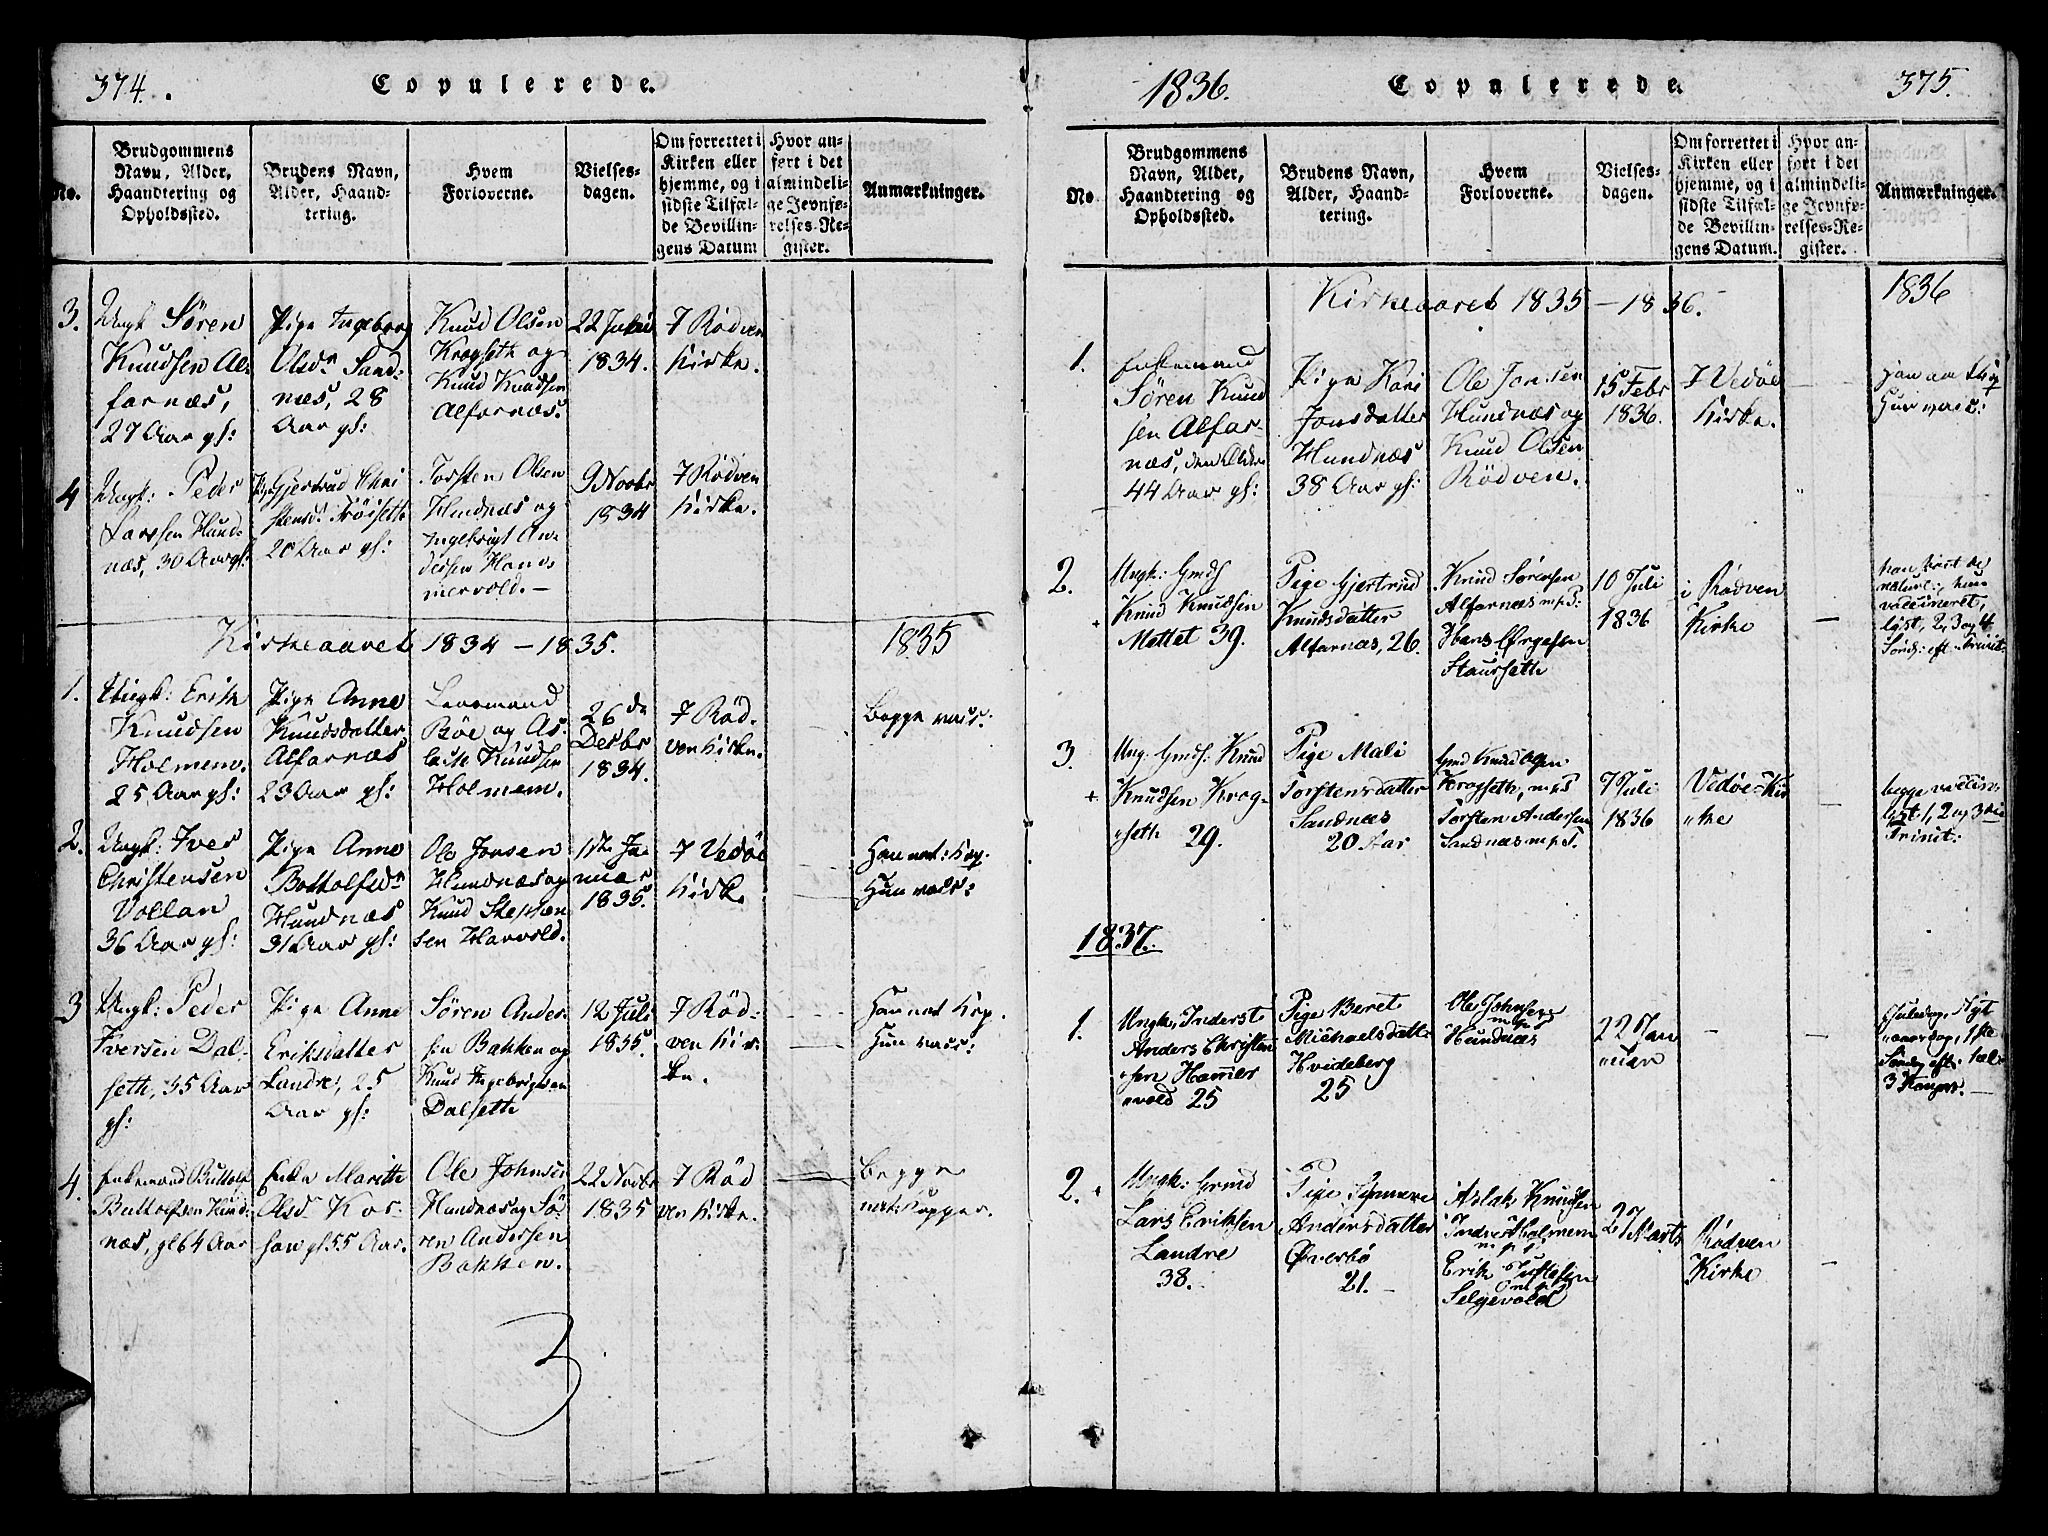 374.
Copulerede.
No.
Brudgommens
Navn, Alder,
Haandtering og
Opholdssted.
Brudens Navn,
Alder, Haand-
tering.
Hvem
Forloverne.
Vielses-
dagen.
Om forrettet i
Kirken eller
hjemme, og i
sidste Tilfæl-
de Bevillin-
gens Datum
Hvor an-
ført i det
almindeli-
ge Jevnfø-
relses-Re-
gister.
Anmærkninger.
3.
Ungk Sören
Knudsen Al-
farnæs,
27 Aar gl:
Pige Ingeborg
Olsdr Sand-
næs, 28
Aar gl:
Knud Olsen
Krogseth og
Knud Knudsen
Alfarnæs.
22 Juni
1834.
I Rödven
Kirke.
4
Ungk: Peder
Larssen Hund-
næs, 30 Aar gl:
Pige Gjertrud Chri
stensd: Tröiseth
20 Aar gl:
Torsten Olsen
Hundnæs og
Ingebrigt An-
dersen Ham-
mervold. —
9 Novbr
1834
I Rödven
Kirke.
Kirkeaaret 1834 — 1835.
1835
1.
Ungk: Erik
Knudsen
Holmem.
25 Aar gl:
Pige Anne
Knudsdatter
Alfarnæs
23 Aar gl:
Leermand
Böe og As-
lack Knudsen
Holmem.
26 de
Decbr
1834.
I Röd-
ven Kirke.
Begge vacc:
2.
Ungk: Iver
Christensen
Vollan
36 Aar gl:
Pige Anne
Bottolfsdr
Hundnæs
31 Aar gl:
Ole Jonsen
Hundnæs og
Knud Stephen
sen Harvold.
1ste Ja
nuar
1835.
I Vedöe
Kirke
Han nat: Kop.
Hun vacc:
3
Ungk: Peder
Iversen Dal-
seth, 35 Aar
gl:
Pige Anne
Eriksdatter
Landre, 25
Aar gl:
Sören Ander-
sen Bakken og
Knud Ingebrigtsen
Dalseth
12 Juli
1835.
I Röd-
ven Kir-
ke.
Han nat Kop.
Hun vacc:
4.
Enkemand Buttolf
Buttolfsen Hund-
næs, gl 64 Aar
Enke Marith
Olsd Kor-
san gl 55 Aar.
Ole Johnsen
Hundnæs og Sö-
ren Andersen
Bakken.
22 Novbr
1835
I Röd
ven Kirke.
Begge
nat: Kopper.
3
1836.
Copulerede.
375.
No
Brudgommens
Navn, Alder,
Haandtering og
Opholdssted.
Brudens Navn,
Alder, Haand-
tering.
Hvem
Forloverne.
Vielses-
dagen.
Om forrettet i
Kirken eller
hjemme, og i
sidste Tilfæl-
de Bevillin-
gens Datum.
Hvor an-
ført i det
almindeli-
ge Jevnfø-
relses-Re-
gister.
Anmærkninger.
Kirkeaaret 1835 — 1836.
1836
1.
Enkemand
Sören Knud
sen Alfar-
næs, den Ældre
44 Aar gl:
Pige Kari
Jonsdatter
Hundnæs
38 Aar gl:
Ole Jonsen
Hundnæs og
Knud Olsen
Rödven.
15 Febr
1836.
I Vedöe
Kirke.
Han
Hun vacc:
2.
+
Ungk: Gmds
Knud Knudsen
Mettet 39.
Pige Gjertrud
Knudsdatter
Alfarnæs, 26.
Knud Sörensen
Alfarnæs m.p.P:
Hans Örgesen
Staurseth
10 Juli
1836
i Rödven
Kirke
naturl:, hun
vaccineret,
lyst, 2, 3 og 4
Sönd: eft Trinit:
3.
+
Ung. Gmds: Knud
Knudsen Krog-
seth 29.
Pige Mali
Torstensdatter
Sandnæs
20 Aar
Gmd Knud Olsen
Krogseth, m.p.P
Torsten Andersen
Sandnæs m.p.P.
7 Juli
1836
Vedöe-Kir
ke
begge vaccin:
lyst 1, 2 og 3die
Trinit:
1837.
1.
Ungk, Inderst
Anders Christen
sen Ham̄er
vold 25
Pige Beret
Michaelsdatter
Hvideberg
25
Ole Johnsen
Hundnæs
22 Jan
uar
Juledag, Nyt
aarsdag, 1ste
Söndag eft.
3 Konger. —
2. +
Ungk: Grmd
Lars Eriksen
Landre
38.
Pige Synneve
Andersdatter
Överbö
21. —
Aslak Knudsen
Indre Holmem
m.p.P.
Erik
Selgevold
27 Marts
Rödven
Kirke